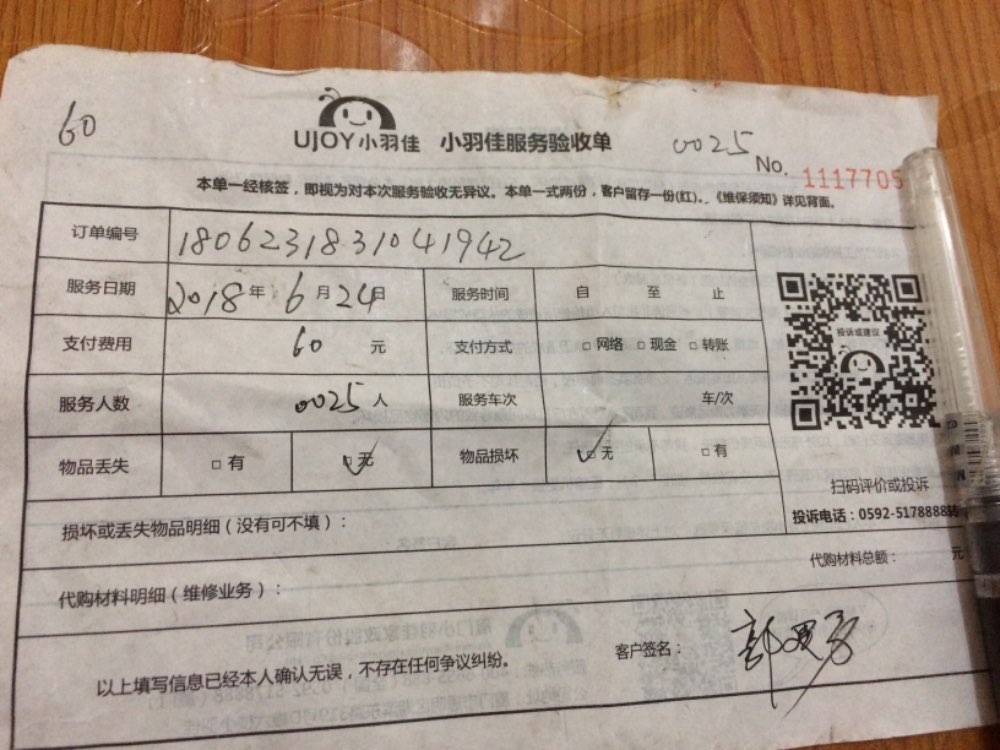 60
UJOY小羽佳 小羽佳服务验收单 0025 No. 1117705
本单一经核签，即视为对本次服务验收无异议。本单一式两份，客户留存一份(红)。《维保须知》详见背面。
订单编号 1806231831041942
服务日期 2018年 6月24日 服务时间 自 至 止
支付费用 60 元 支付方式 □网络 □现金 □转账
服务人数 0025人 服务车次 车/次
物品丢失 □有 □无 物品损坏 □无 □有
投诉或建议
扫码评价或投诉
投诉电话：0592-5178888转
损坏或丢失物品明细（没有可不填）：
代购材料明细（维修业务）： 代购材料总额： 元
以上填写信息已经本人确认无误，不存在任何争议纠纷。 客户签名：